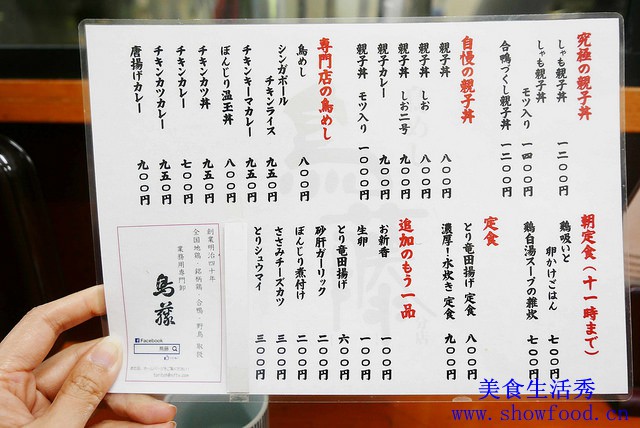 究極の親子丼
しゃも親子丼 一二〇〇円
しゃも親子丼
モツ入り 一四〇〇円
合鴨づくし親子丼 一二〇〇円
自慢の親子丼
親子丼 八〇〇円
親子丼 しお 八〇〇円
親子丼 しお二号 九〇〇円
親子カレー 九〇〇円
親子丼 モツ入り 一〇〇〇円
専門店の鳥めし
鳥めし 八〇〇円
シンガポール
チキンライス 九五〇円
チキンキーマカレー 九五〇円
ぼんじり温玉丼 八〇〇円
チキンカツ丼 九五〇円
チキンカレー 七〇〇円
チキンカツカレー 九五〇円
唐揚げカレー 九〇〇円
朝定食(十一時まで)
鶏吸いと
卵かけごはん 七〇〇円
鶏白湯スープの雑炊 七〇〇円
定食
とり竜田揚げ 定食 八〇〇円
濃厚!水炊き 定食 九〇〇円
追加のもう一品
お新香 一〇〇円
生卵 一〇〇円
とり竜田揚げ 六〇〇円
砂肝ガーリック 二〇〇円
ぼんじり煮付け 二〇〇円
ささみチーズカツ 三〇〇円
とりシュウマイ 三〇〇円
創業明治四十年
全国地鶏・銘柄鶏・合鴨・野鳥 取扱
業務用専門卸
鳥藤
Facebook
鳥藤
美食生活秀
www.showfood.cn